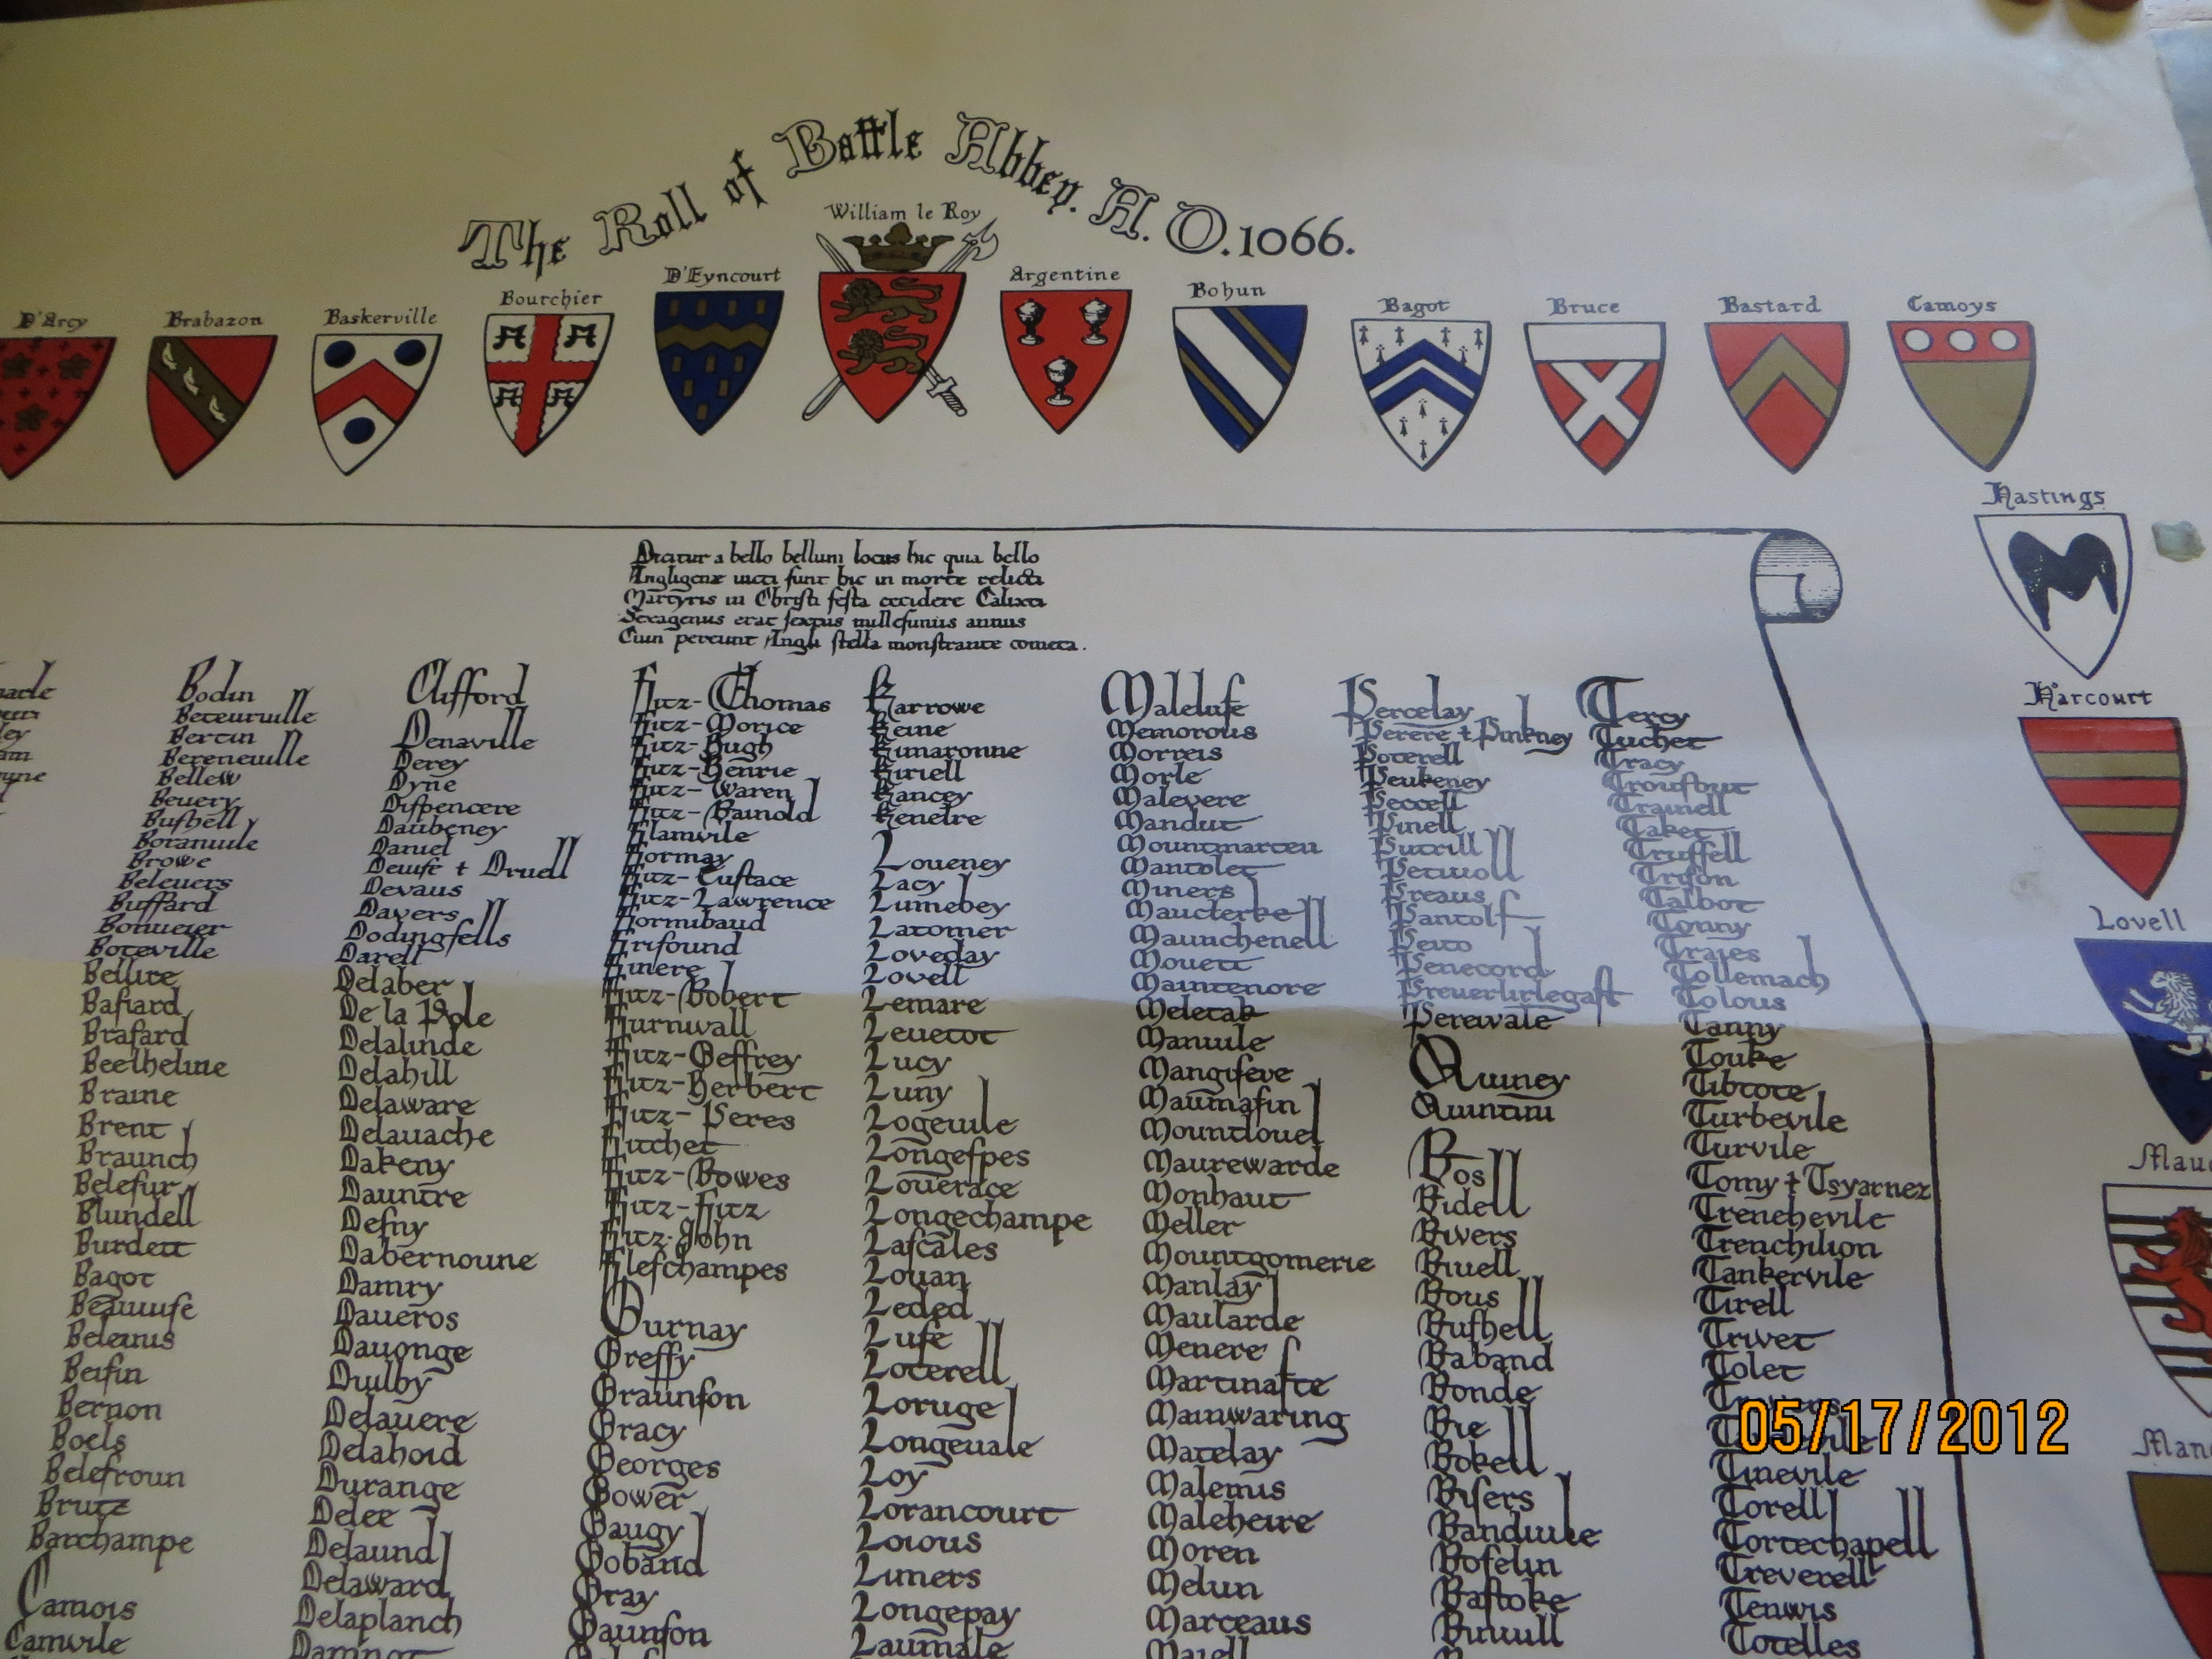 The Roll of Battle Abbey. A. D. 1066.
William le Roy
D'Arcy
Brabazon
Baskerville
Bourchier
D'Eyncourt
Argentine
Bohun
Bagot
Bruce
Bastard
Camoys
Hastings
Harcourt
Lovell
Dicitur a bello bellum locus hic quia bello
Angligenæ victi sunt hic in morte relicti
Martyris in Christi festa cecidere Calixti
Sexagenus erat sextus millesimus annus
Cum pereunt Angli stella monstrante cometa.
Bodin
Beteurville
Bertin
Bereneville
Bellew
Beuery
Bushell
Boranvile
Browe
Beleuers
Buffard
Boteville
Bellire
Bastard
Brasard
Beelhelme
Braine
Brent
Braunch
Belesur
Blundell
Burdett
Bagot
Beauvise
Belemis
Beisin
Bernon
Boels
Belefroun
Brutz
Barchampe
Camois
Camvile
Clifford
Denaville
Derey
Dyne
Dispencere
Daubeney
Daniel
Deuise & Druell
Devaus
Davers
Dodingsells
Darell
Delaber
De la Pole
Delalinde
Delahill
Delaware
Delauache
Dakeny
Dauntre
Desny
Dabernoune
Damry
Daueros
Dauonge
Duilby
Delauere
Delahoid
Durange
Delee
Delaund
Delaward
Delaplanch
Damnot
Fitz-Thomas
Fitz-Morice
Fitz-Hugh
Fitz-Henrie
Fitz-Waren
Fitz-Rainold
Flamvile
Formay
Fitz-Eustace
Fitz-Lawrence
Formibaud
Frisound
Finere
Fitz-Robert
Furnivall
Fitz-Geffrey
Fitz-Herbert
Fitz-Peres
Fitchet
Fitz-Rowes
Fitz-Fitz
Fitz-John
Fleschampes
Gurnay
Greffy
Graunson
Gracy
Georges
Gower
Gaugy
Goband
Gray
Gaunson
Karrowe
Keine
Kimaronne
Kiriell
Kancey
Kenelre
Loueney
Lacy
Linnebey
Latomer
Loveday
Lovell
Lemare
Leuetot
Lucy
Luny
Logevile
Longespes
Louerace
Longechampe
Lascales
Louan
Leded
Luse
Loterell
Loruge
Longeuale
Loy
Lorancourt
Loious
Limers
Longepay
Laumale
Malelufe
Memorous
Morreis
Morle
Malevere
Mandut
Mountmarten
Mantolet
Miners
Mauclerke
Maunchenell
Mouett
Maintenore
Meletak
Manvile
Mangiseve
Maumasin
Mountlouel
Maurewarde
Monhaut
Meller
Mountgomerie
Manlay
Maularde
Menere
Martinaste
Mainwaring
Matelay
Malemis
Maleheire
Moren
Melun
Marceaus
Maiell
Percelay
Perere & Pinkney
Poterell
Peukeney
Peccell
Pinell
Putrill
Petivoll
Preaus
Pantolf
Peito
Penecord
Preuerlirlegast
Percivale
Quincy
Quintini
Ros
Ridell
Rivers
Rivell
Rous
Rushell
Raband
Ronde
Rie
Rokell
Risers
Randvile
Roselin
Rastoke
Rinvill
Tercy
Tuchet
Tracy
Trousbut
Trainell
Taket
Trussell
Trison
Talbot
Tonny
Traies
Tollemach
Tolous
Tanny
Touke
Tibtote
Turbevile
Turvile
Tomy & Tsyarnez
Trenehevile
Trenchilion
Tankervile
Tirell
Trivet
Tolet
Tinevile
Torell
Tortechapell
Treverell
Tenwis
Totelles
05/17/2012